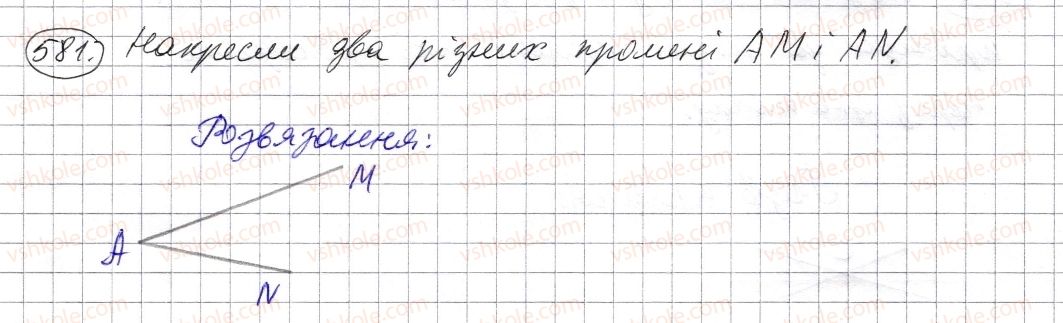 581. Накресли два різних промені AM і AN.
Розвязання:
M
A
N